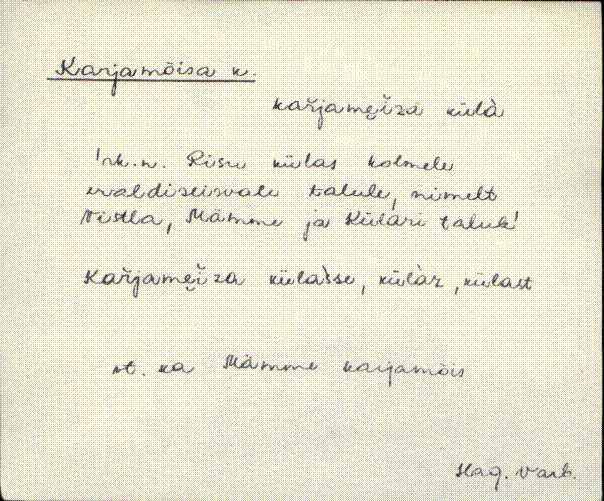 Karjamõisa k.
kařjamẹĭza külà
'rk.n. Risu külas kolmele
eraldiseisvale talule, nimelt
Vistla, Mämme ja Külari talud'
Kařjamẹĭza külàsse, külàz, külast
vt. ka Mämme karjamõis
Hag. Varb.